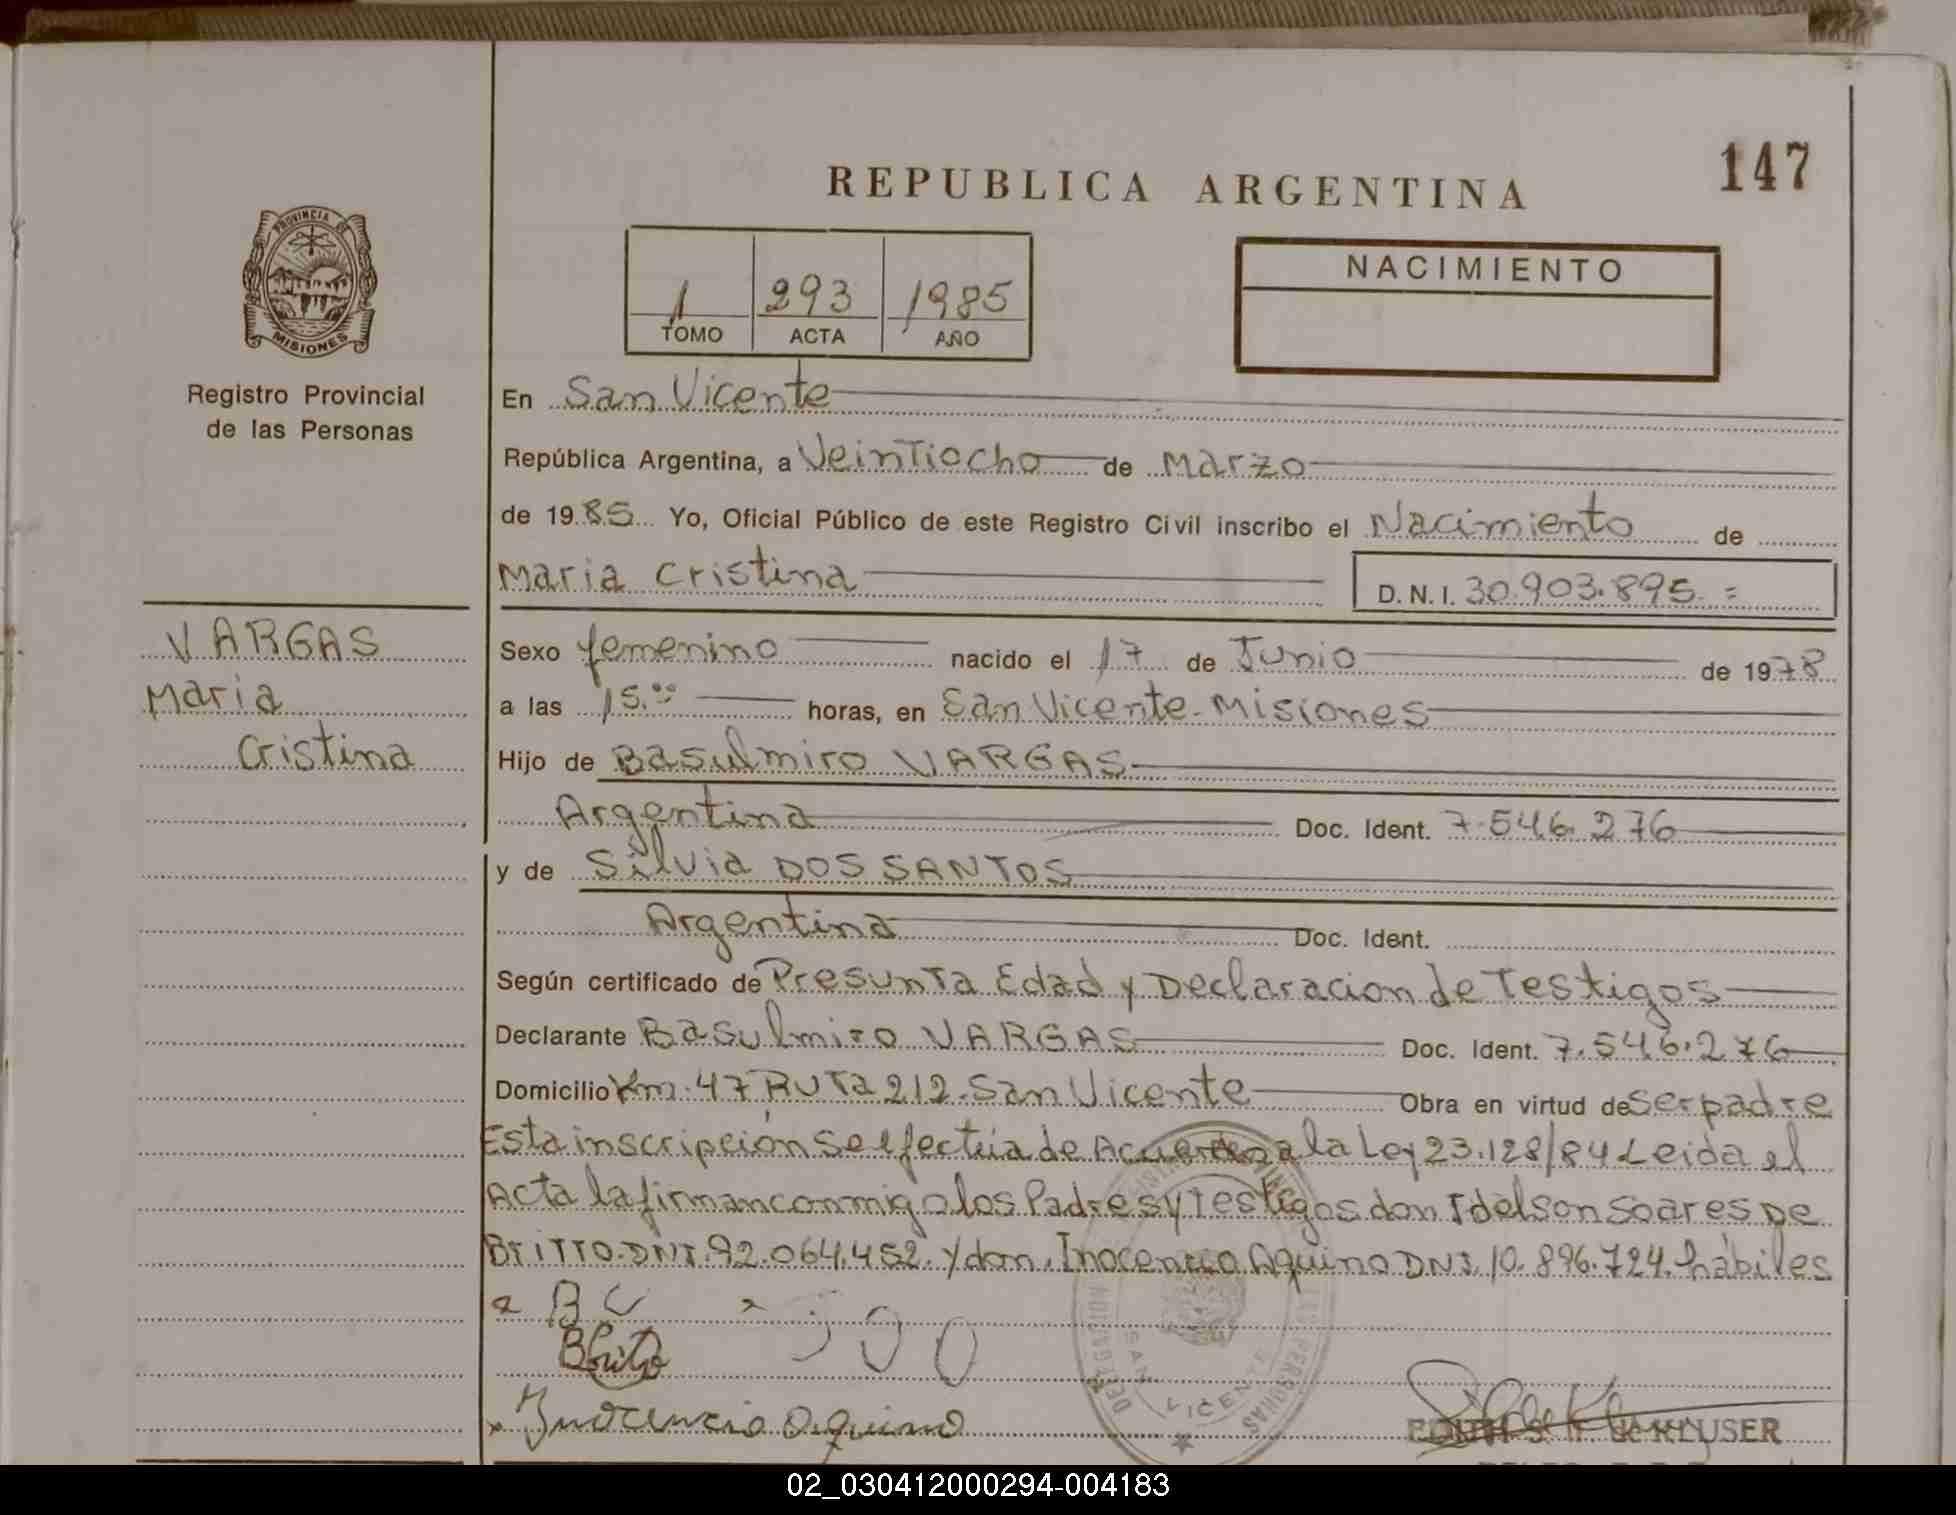 147
REPUBLICA ARGENTINA
PROVINCIA DE
MISIONES
Registro Provincial
de las Personas
1 293 1985
TOMO ACTA AÑO
NACIMIENTO
En San Vicente
República Argentina, a Veintiocho de Marzo
de 1985 Yo, Oficial Público de este Registro Civil inscribo el Nacimiento de
Maria Cristina D.N.I. 30.903.895 =
VARGAS
Maria
Cristina
Sexo femenino nacido el 17 de Junio de 1978
a las 15.00 horas, en San Vicente - Misiones
Hijo de Basulmiro VARGAS
Argentina Doc. Ident. 7.546.276
y de Silvia DOS SANTOS
Argentina Doc. Ident.
Según certificado de Presunta Edad y Declaracion de Testigos
Declarante Basulmiro VARGAS Doc. Ident. 7.546.276
Domicilio Km. 47 RUTa 212. San Vicente Obra en virtud de ser padre
Esta inscripción se efectúa de Acuerdo a la Ley 23.128/84 Leida el
Acta la firman conmigo los Padres y Testigos don Idelson Soares De
Britto. DNI. 92.064.452. y don. Inocencio Aquino DNI. 10.896.724. hábiles
x B V x
Britto
x Inocencio Aquino
DELEGACION
SAN VICENTE
PERSONAS
KLUSER
02_030412000294-004183